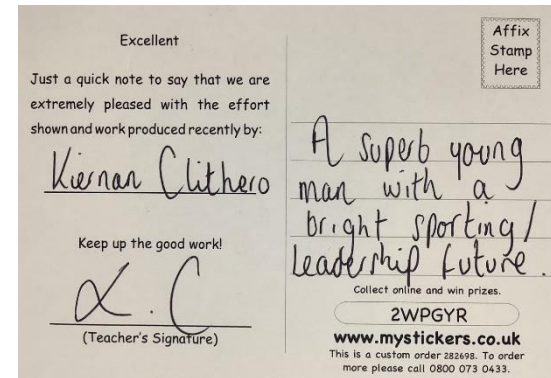 Excellent
Just a quick note to say that we are
extremely pleased with the effort
shown and work produced recently by:
Kiernan Clithero
Keep up the good work!
L.C
(Teacher's Signature)
Affix
Stamp
Here
A superb young
man with a
bright sporting/
leadership future.
Collect online and win prizes.
2WPGYR
www.mystickers.co.uk
This is a custom order 282698. To order
more please call 0800 073 0433.